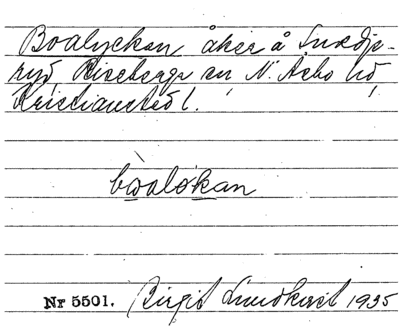 Boalyckan åker å Snröjp-
ryd, Riseberga sn N. Åsbo hd
Kristianstad l.
bωalo̊kan
Nr 5501. Birgit Lundkvist 1935